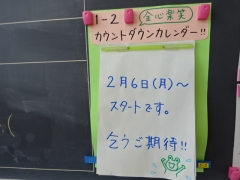 1-2 全心楽笑
カウントダウンカレンダー!!
2月6日(月)～
スタートです。
乞うご期待!!